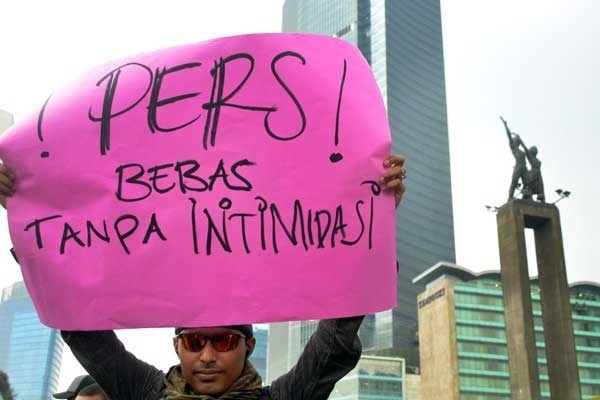 ! PERS !
BEBAS
TANPA INTIMIDASI